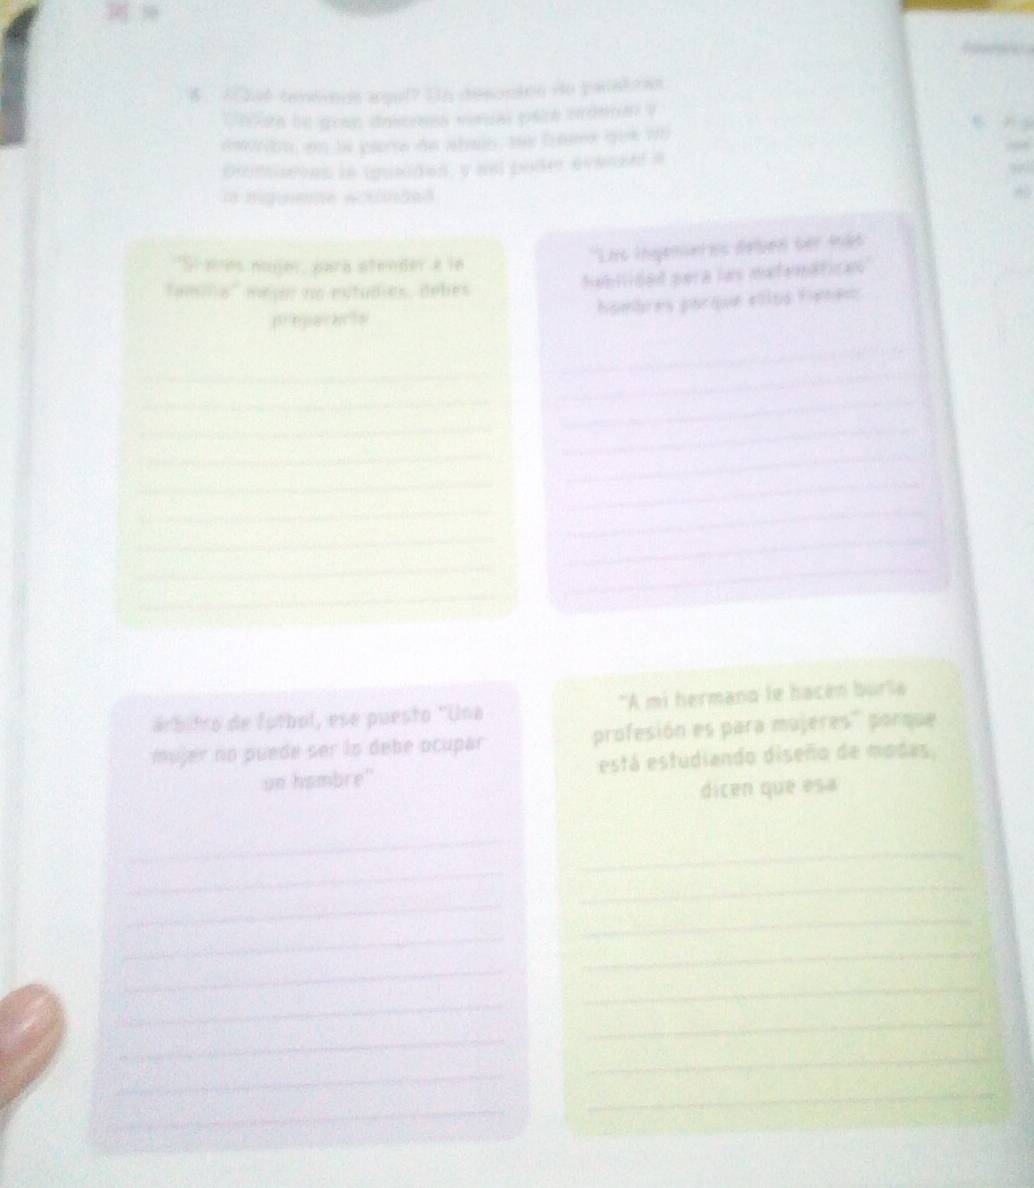 ¿Qué tenemos aquí? Un desorden de palabras.
Utiliza tu gran destreza visual para ordenar y
en la parte de abajo, las frases que no
promueven la igualdad, y así poder avanzar a
la siguiente actividad.
"Si eres mujer, para atender a la
familia" mejor no estudies, debes
prepararte
"Los ingenieros deben ser más
habilidad para las matemáticas"
hombres porque ellos tienen
árbitro de futbol, ese puesto "Una
mujer no puede ser lo debe ocupar
un hombre"
"A mi hermano le hacen burla
profesión es para mujeres" porque
está estudiando diseño de modas,
dicen que esa